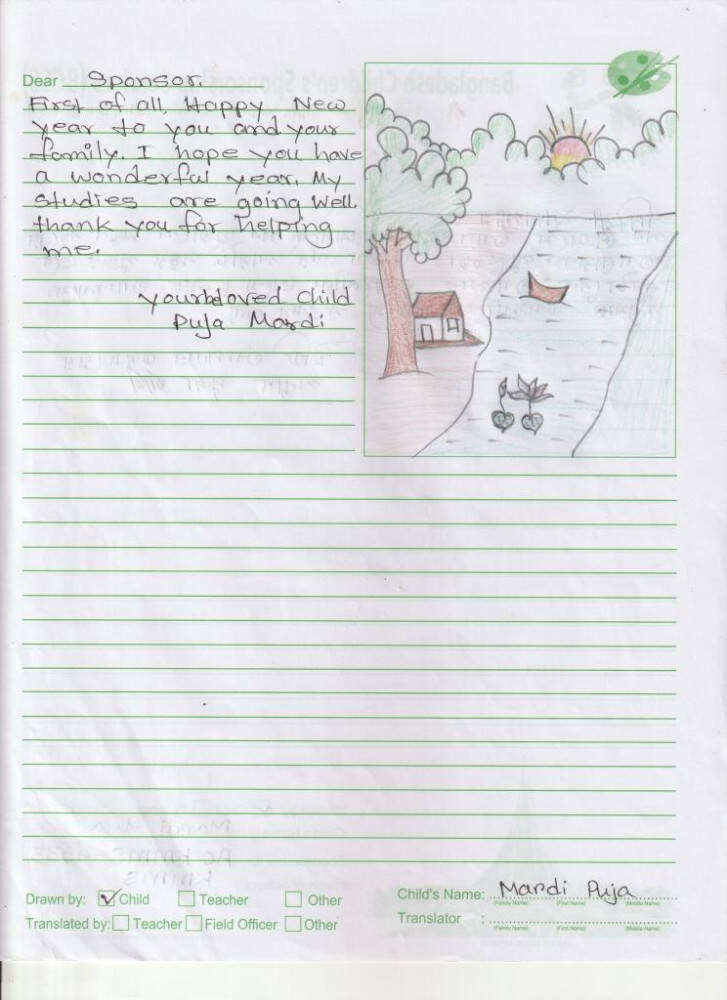 Dear Sponsor.
First of all, Happy New
year to you and your
family. I hope you have
a wonderful year. My
studies are going well
thank you for helping
me.
your beloved child
Puja Mardi
Drawn by: Child Teacher Other
Translated by: Teacher Field Officer Other
Child's Name: Mardi Puja
(Family Name) (First Name) (Middle Name)
Translator :
(Family Name) (First Name) (Middle Name)